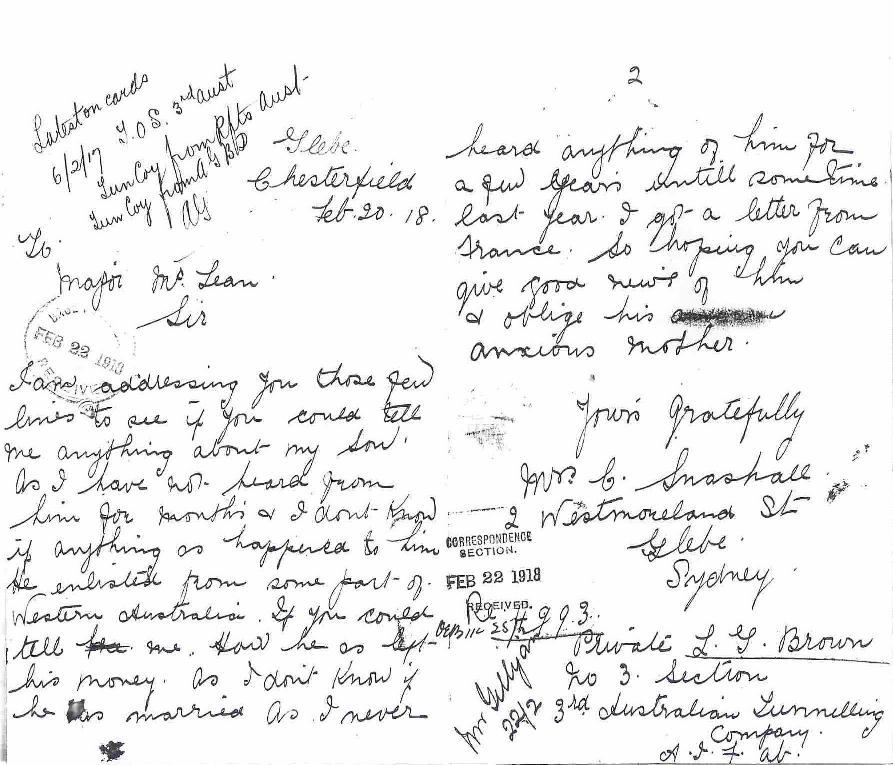 Latest on cards
6/2/17 T.O.S. 3rd Aust
Tun Coy from Rfts Aust
Tun Coy from A G B D
Glebe.
Chesterfield
Feb. 20. 18.
To.
Major Mc Lean.
Sir
FEB 22 1918
RECEIVED
I am addressing you those few
lines to see if you could tell
me anything about my son.
As I have not heard from
him for months & I dont know
if anything as happered to him
He enlisted from some part of.
Western Australia. If you could
tell me. How he as left
his money. As I don't know if
he was married As I never
2
heard anything of him for
a few years untill sometime
last year. I got a letter from
France. So hoping you can
give good news of him
& oblige his
anxious mother.
Yours Gratefully
Mrs C. Snashall.
2 Westmoreland St
Glebe.
Sydney.
CORRESPONDENCE
SECTION.
FEB 22 1918
RECEIVED.
25th
Private L. G. Brown
No 3. Section
3rd Australian Tunnelling
Company.
A. I. F. ab.
22/2